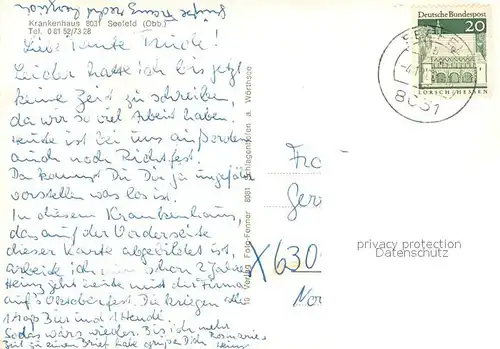 Krankenhaus 8031 Seefeld (Obb.)
Tel. 0 81 52/73 28
Liebe Tante Trudl!
Leider hatte ich bis jetzt
keine Zeit zu schreiben,
da wir so viel Arbeit haben.
Heute ist bei uns außerdem
auch noch Richtfest.
Da kannst Du Dir ja ungefähr
vorstellen was los ist.
In diesem Krankenhaus,
das auf der Vorderseite
dieser Karte abgebildet ist,
arbeite ich nun schon 2 Jahre.
Heinz geht heute mit der Firma
auf's Oktoberfest. Die kriegen alle
1 Stop Bier und 1 Hendl.
Sodas wärs wieder. Bis ich mehr
Zeit zu einen Brief habe grüßen Dich Rosmarie u.
Heinz
10 Verlag Foto-Fenner 8081 Schlagenhofen a. Wörthsee
Deutsche Bundespost
20
LORSCH/HESSEN
SEEF
8031
Fra
Ger
X 630
Nor
privacy protection
Datenschutz